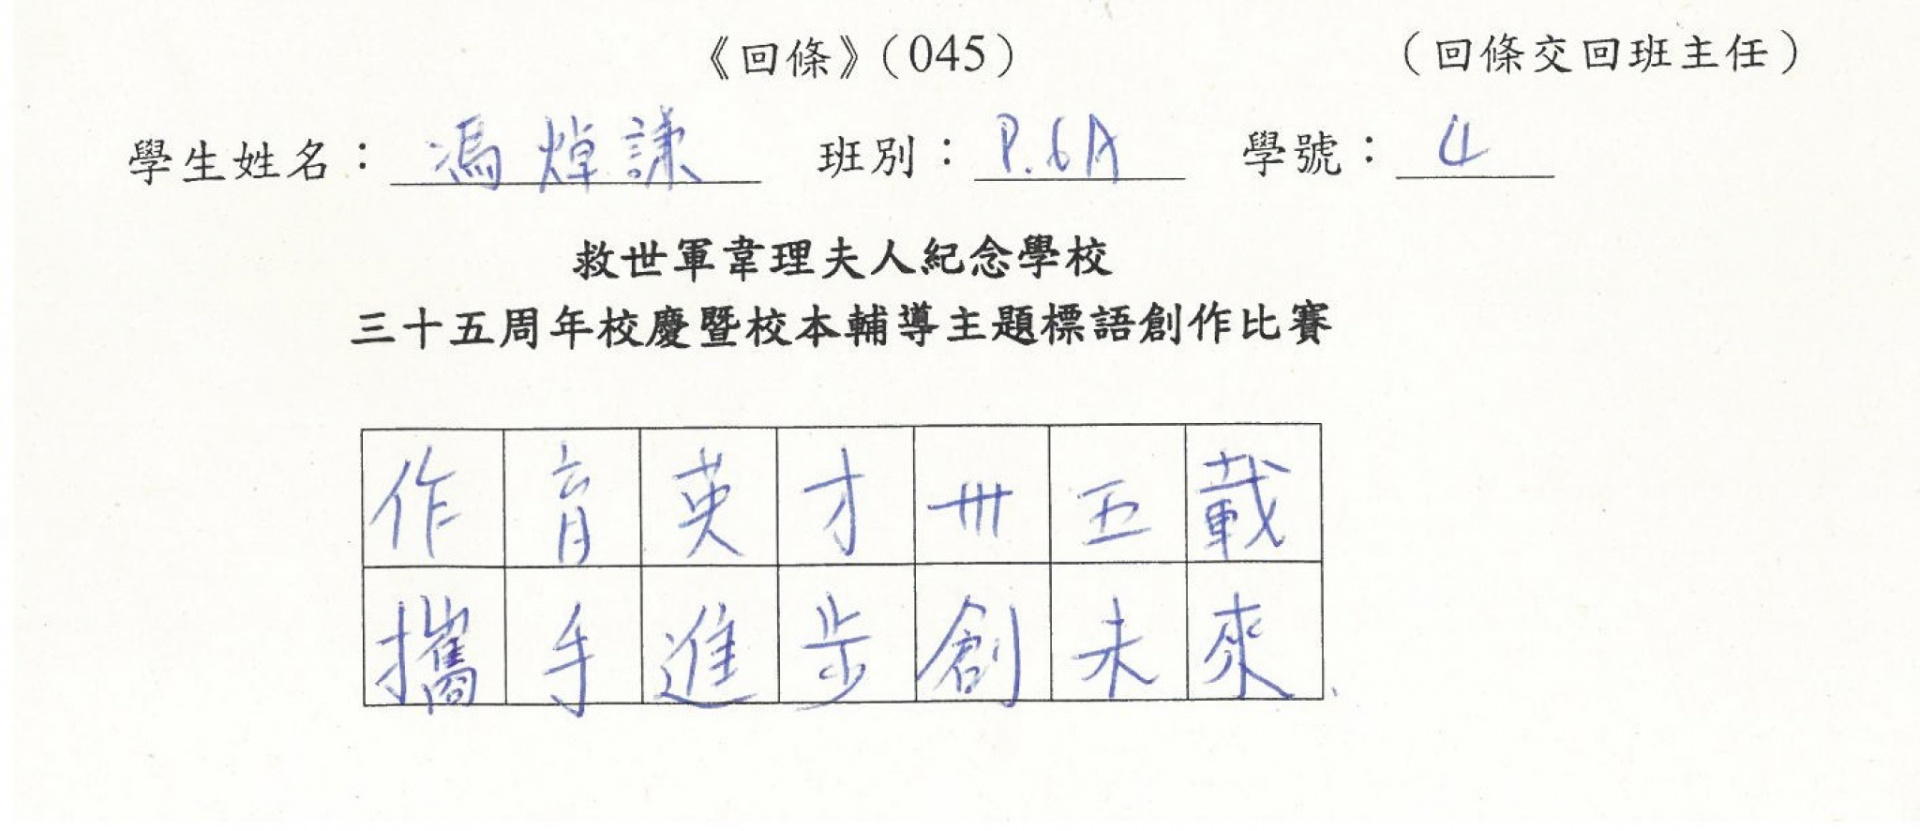 《回條》(045) （回條交回班主任）
學生姓名：馮焯謙 班別：P.6A 學號：4
救世軍韋理夫人紀念學校
三十五周年校慶暨校本輔導主題標語創作比賽
作育英才卅五載
攜手進步創未來